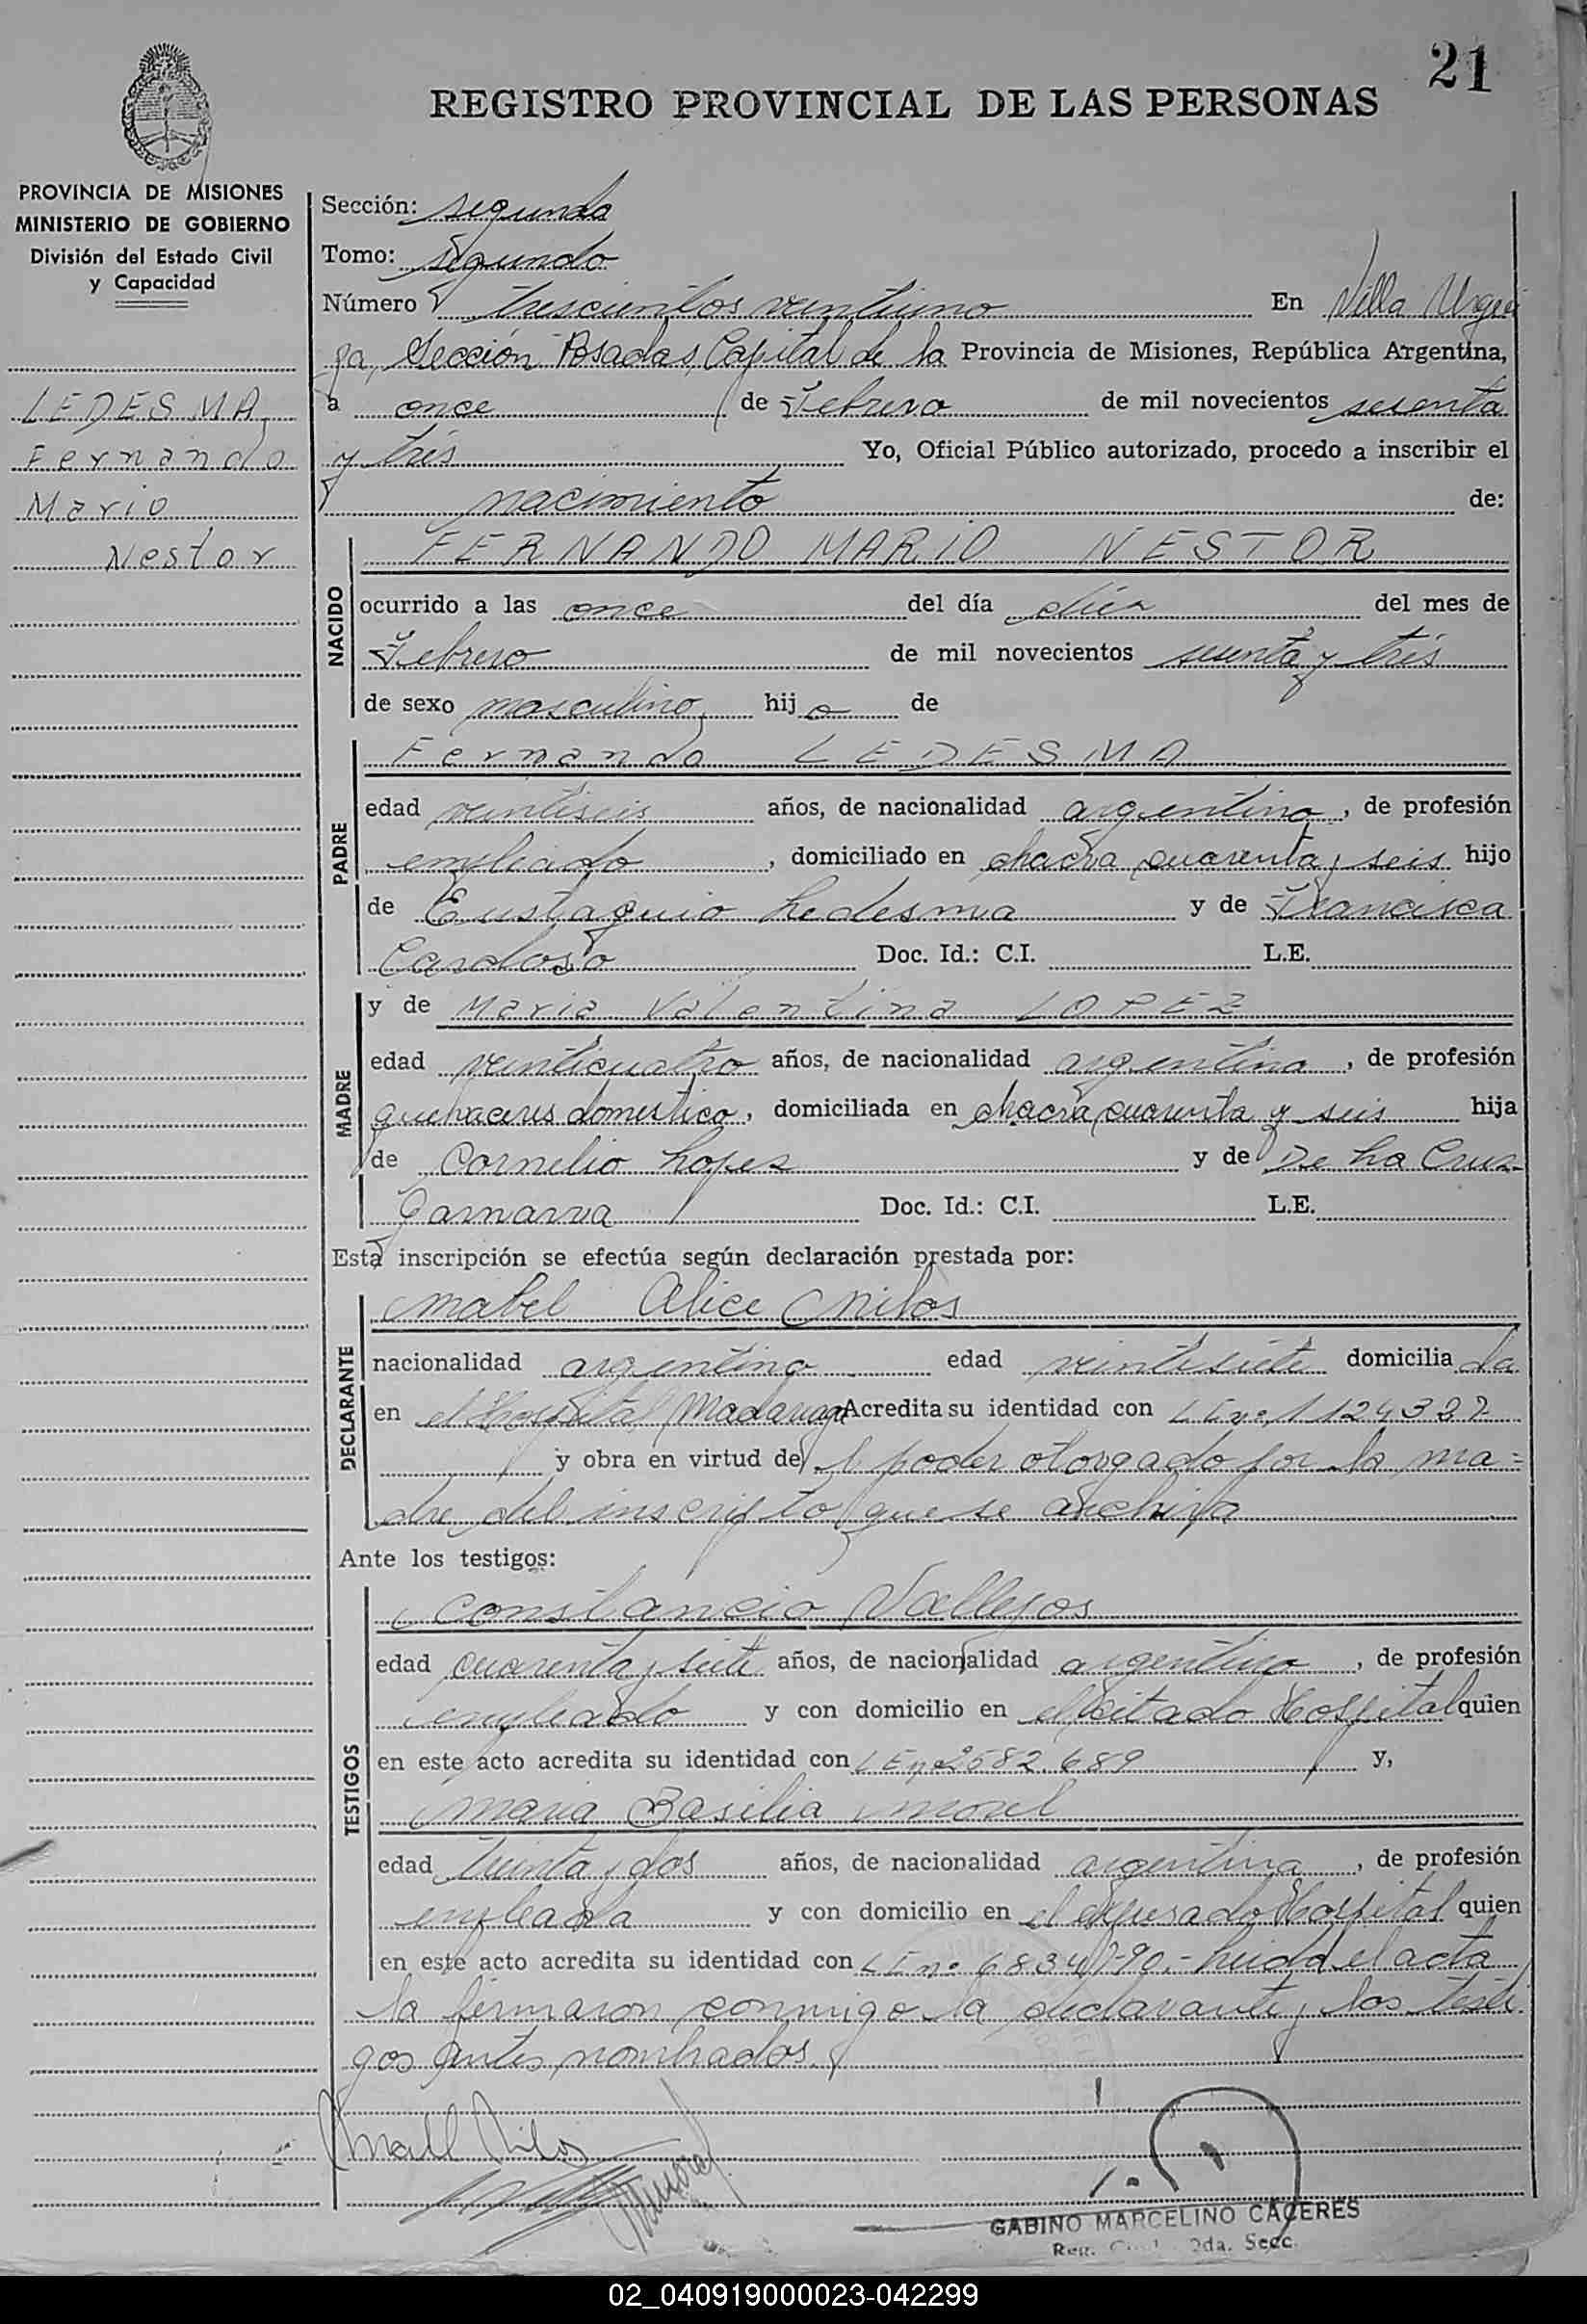 21
REGISTRO PROVINCIAL DE LAS PERSONAS
PROVINCIA DE MISIONES
MINISTERIO DE GOBIERNO
División del Estado Civil
y Capacidad
LEDESMA
Fernando
Mario
Nestor
Sección: segunda
Tomo: segundo
Número trescientos veintiuno En Villa Urqui
za, Sección Posadas, Capital de la Provincia de Misiones, República Argentina,
a once de Febrero de mil novecientos sesenta
y tres Yo, Oficial Público autorizado, procedo a inscribir el
nacimiento de:
NACIDO
FERNANDO MARIO NESTOR
ocurrido a las once del día diez del mes de
Febrero de mil novecientos sesenta y tres
de sexo masculino, hijo de
PADRE
Fernando LEDESMA
edad veintiseis años, de nacionalidad argentino, de profesión
empleado, domiciliado en chacra cuarenta y seis hijo
de Eustaquio Ledesma y de Francisca
Cardoso Doc. Id.: C.I. L.E.
MADRE
y de Maria Valentina LOPEZ
edad veinticuatro años, de nacionalidad argentina, de profesión
quehaceres domestico, domiciliada en chacra cuarenta y seis hija
de Cornelio Lopez y de De La Cruz
Doc. Id.: C.I. L.E.
Esta inscripción se efectúa según declaración prestada por:
DECLARANTE
Mabel Alice Milos
nacionalidad argentina edad veintisiete domiciliada
en el Hospital Madariaga Acredita su identidad con LE nº
y obra en virtud del poder otorgado por la ma=
dre del inscripto que se archiva
Ante los testigos:
TESTIGOS
Constancio Vallejos
edad cuarenta y siete años, de nacionalidad argentino, de profesión
empleado y con domicilio en el citado Hospital quien
en este acto acredita su identidad con LE nº 2582.689 y,
Maria Basilia Morel
edad treinta y dos años, de nacionalidad argentina, de profesión
empleada y con domicilio en el expresado Hospital quien
en este acto acredita su identidad con LE nº Leida el acta
la firmaron conmigo la declarante y los testi
gos antes nombrados.
Mabel Milos
GABINO MARCELINO CACERES
2da. Secc.
02_040919000023-042299